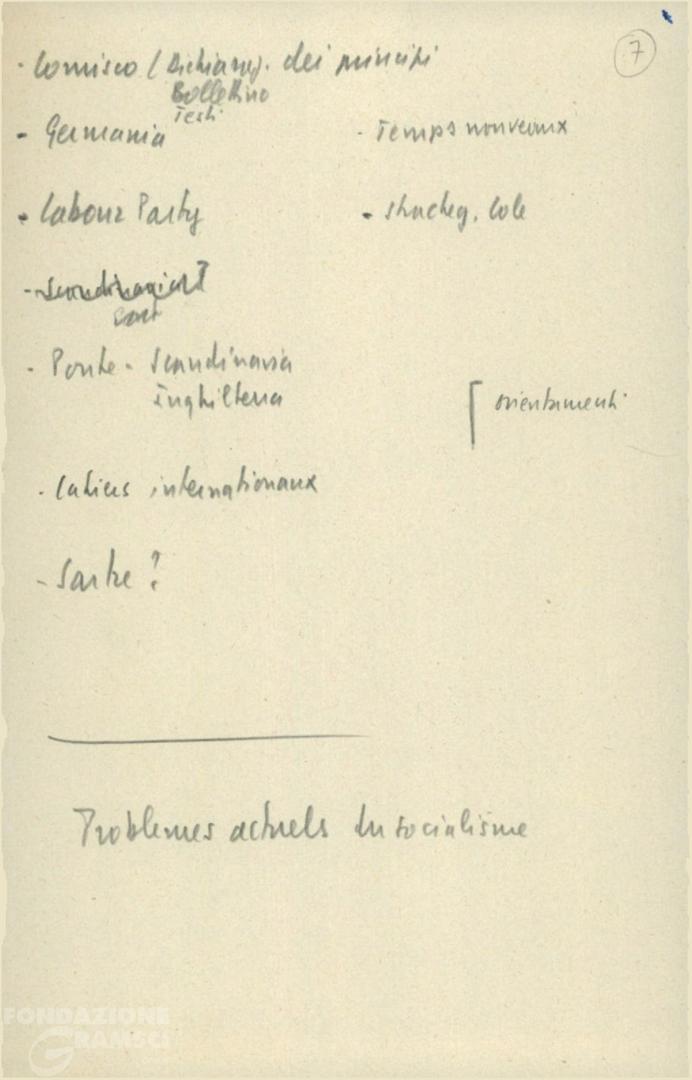 7
· Comisco (Dichiaraz. dei principi
Bollettino
Testi
- Germania
- Temps nouveaux
- Labour Party
- Strachey, Cole
- Scandinavia?
- Ponte - Scandinavia
Inghilterra
[ orientamenti
- Cahiers internationaux
- Sartre?
Problemes actuels du socialisme
FONDAZIONE
GRAMSCI